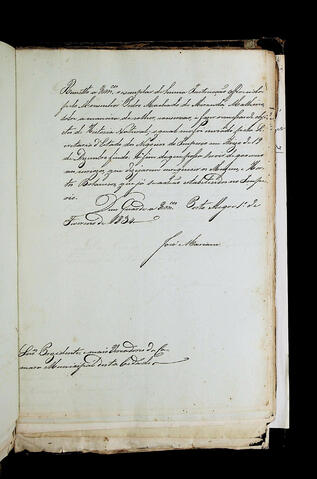 Remetto a Vmces exemplar de huma Instrucção offerecida
pelo Monsenhor Pedro Machado de Miranda Malheiro,
sobre a maneira de colher, conservar, e fazer remessas de obje
ctos de Historia Natural, a qual me foi enviada pela Se
cretaria d'Estado dos Negocios do Imperio em Aviso de 19
de Dezembro findo. A fim de que possa servir de governo
as pessoas que desejarem enriquecer os Museos, e Hor
to Botanico, que já se achão estabelecidos no Imperio.
Deos Guarde a Vmces Porto Alegre 1º de
Fevereiro de 1834
José Mariani
Snres Presidente, e mais Vereadores da Ca
mara Municipal desta Cidade